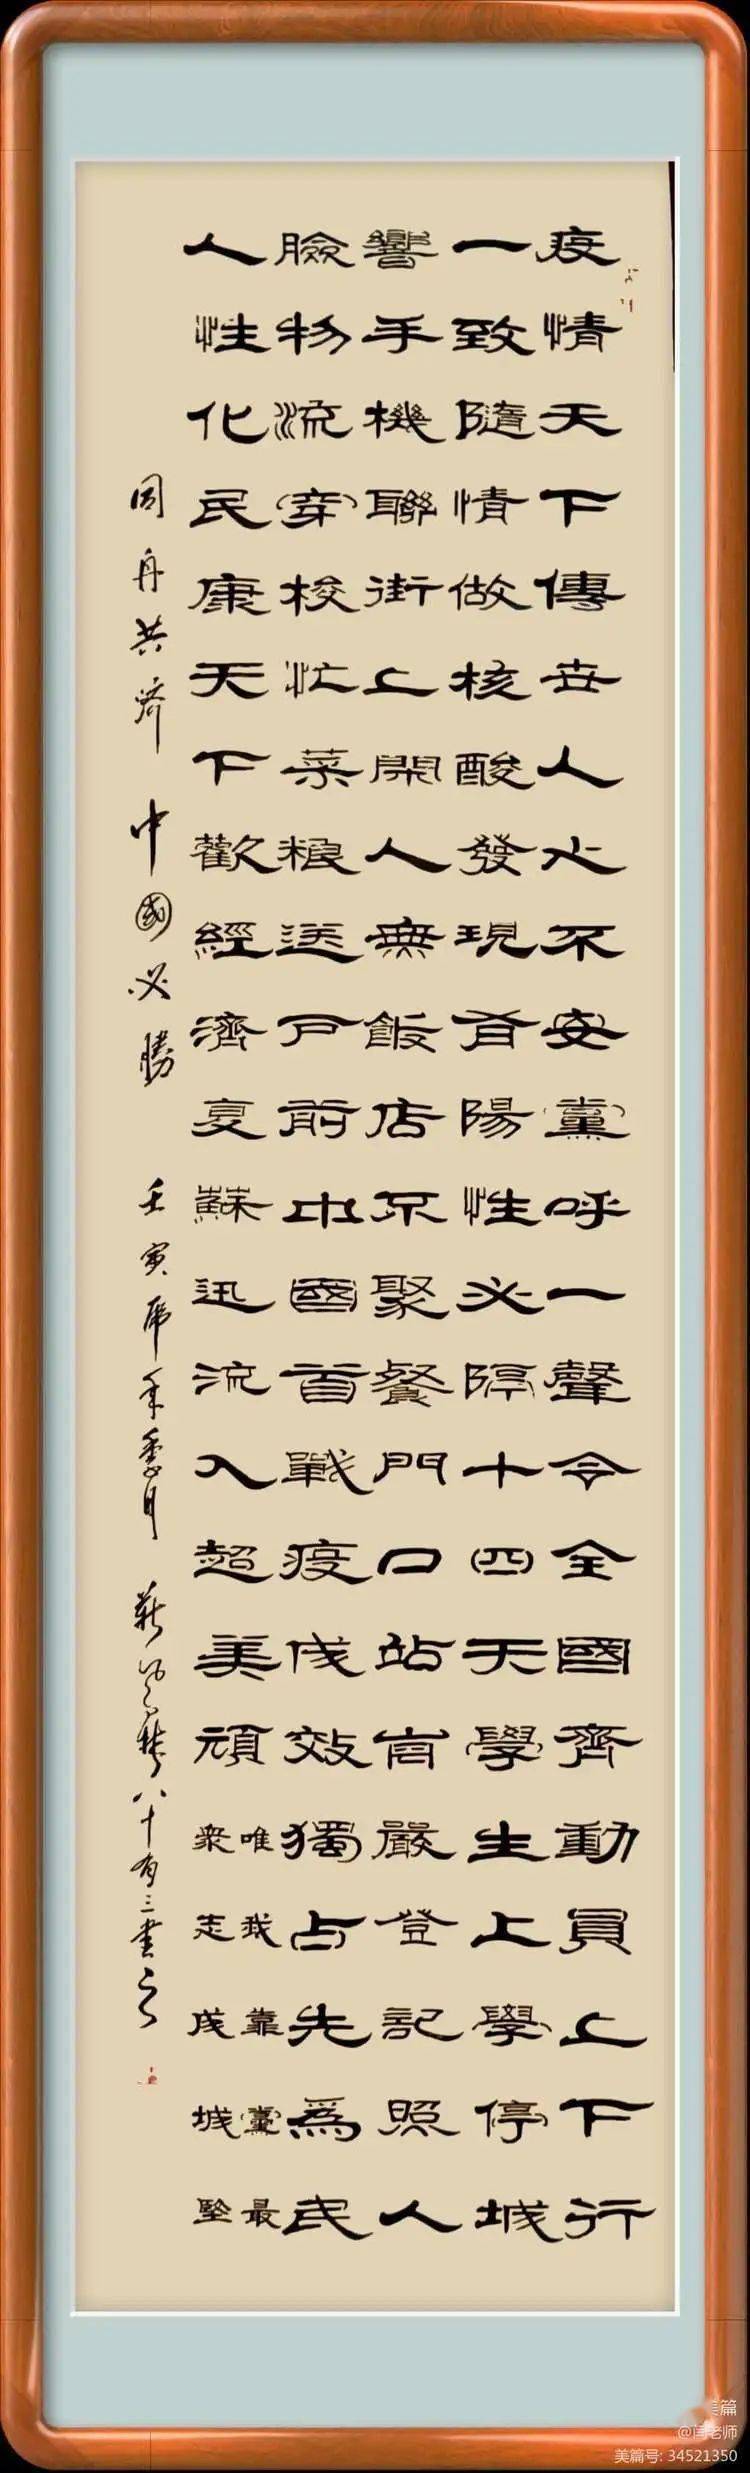 疫情天下傳世人心不安黨呼一聲令全國齊動員上下行
一致隨情做核酸發現有陽性必隔十四天學生上學停城
響手機聯街上開人無飯店不聚餐門口站崗嚴登記照人
臉物流穿梭忙菜粮送戶前中國首戰疫成效獨占先為民
人性化民康天下歡經濟复蘇迅流入超美頑
唯我靠黨最
衆志成城堅
同舟共濟 中國必勝 壬寅虎年季月 八十有三書
美篇
@闫老师
美篇号: 34521350